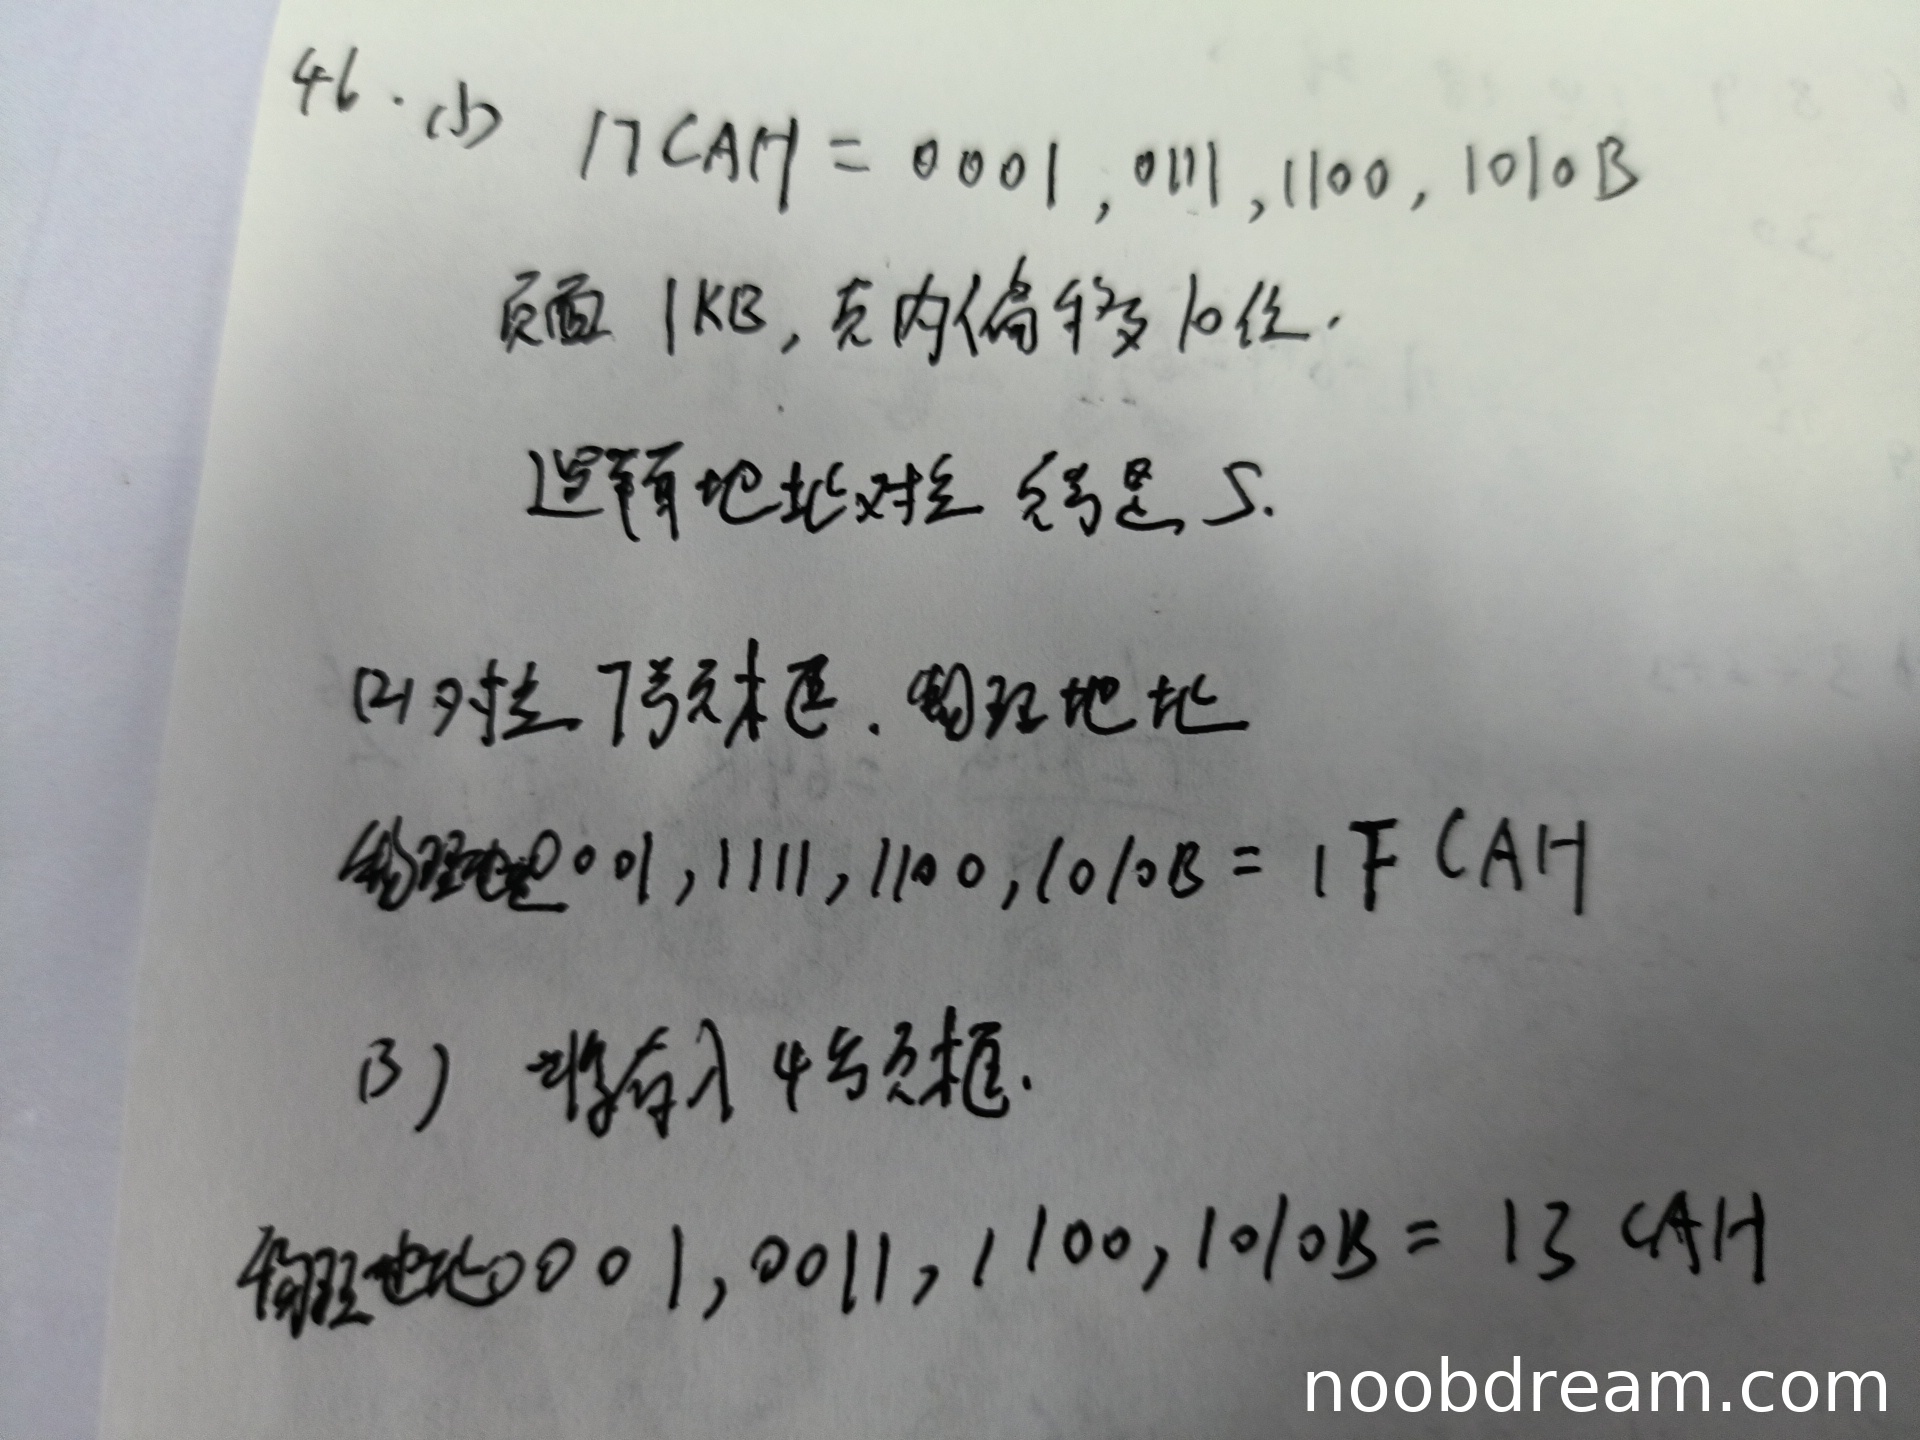 46. (1) 17CAH = 0001,0111,1100,1010B
页面 1KB,页内偏移10位.
逻辑地址对应 页号是 5.
(2)对应 7号页框. 物理地址
物理地址0001,1111,1100,1010B = 1FCAH
(3) 将存入4号页框.
物理地址0001,0011,1100,1010B = 13CAH
noobdream.com